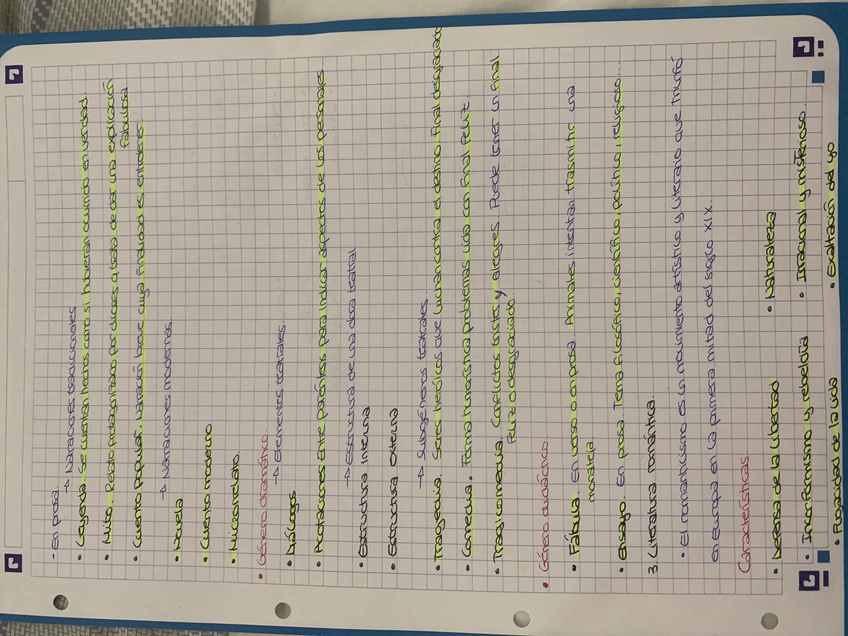 - En prosa.
→ Narraciones tradicionales
• Leyenda. Se cuentan hechos como si hubieran ocurrido en verdad.
• Mito. Relato protagonizado por dioses q trata de dar una explicación
fabulosa.
• Cuento popular. Narración breve cuya finalidad es entretener
→ Narraciones modernas
• Novela
• Cuento moderno
• Microrrelato.
• Género dramático
→ Elementos teatrales.
• Diálogos
• Acotaciones Entre paréntesis para indicar aspectos de los personajes
→ Estructura de una obra teatral
• Estructura interna
• Estructura externa
→ Subgéneros teatrales
• Tragedia. Seres heróicos que luchan contra el destino. Final desgraciado
• Comedia. Forma humorística problemas vida con final feliz.
• Tragicomedia. Conflictos tristes y alegres. Puede tener un final
feliz o desgraciado.
• Género didáctico
• Fábula. En verso o en prosa. Animales intentan trasmitir una
moraleja
• Ensayo. En prosa. Tema filosófico, científico, político, religioso...
3. Literatura romántica.
• El romanticismo es un movimiento artístico y literario que triunfó
en Europa en la primera mitad del siglo XIX.
Características
• Defensa de la libertad • Naturaleza
• Inconformismo y rebeldía • Irracional y misterioso
• Fugacidad de la vida • Exaltación del yo